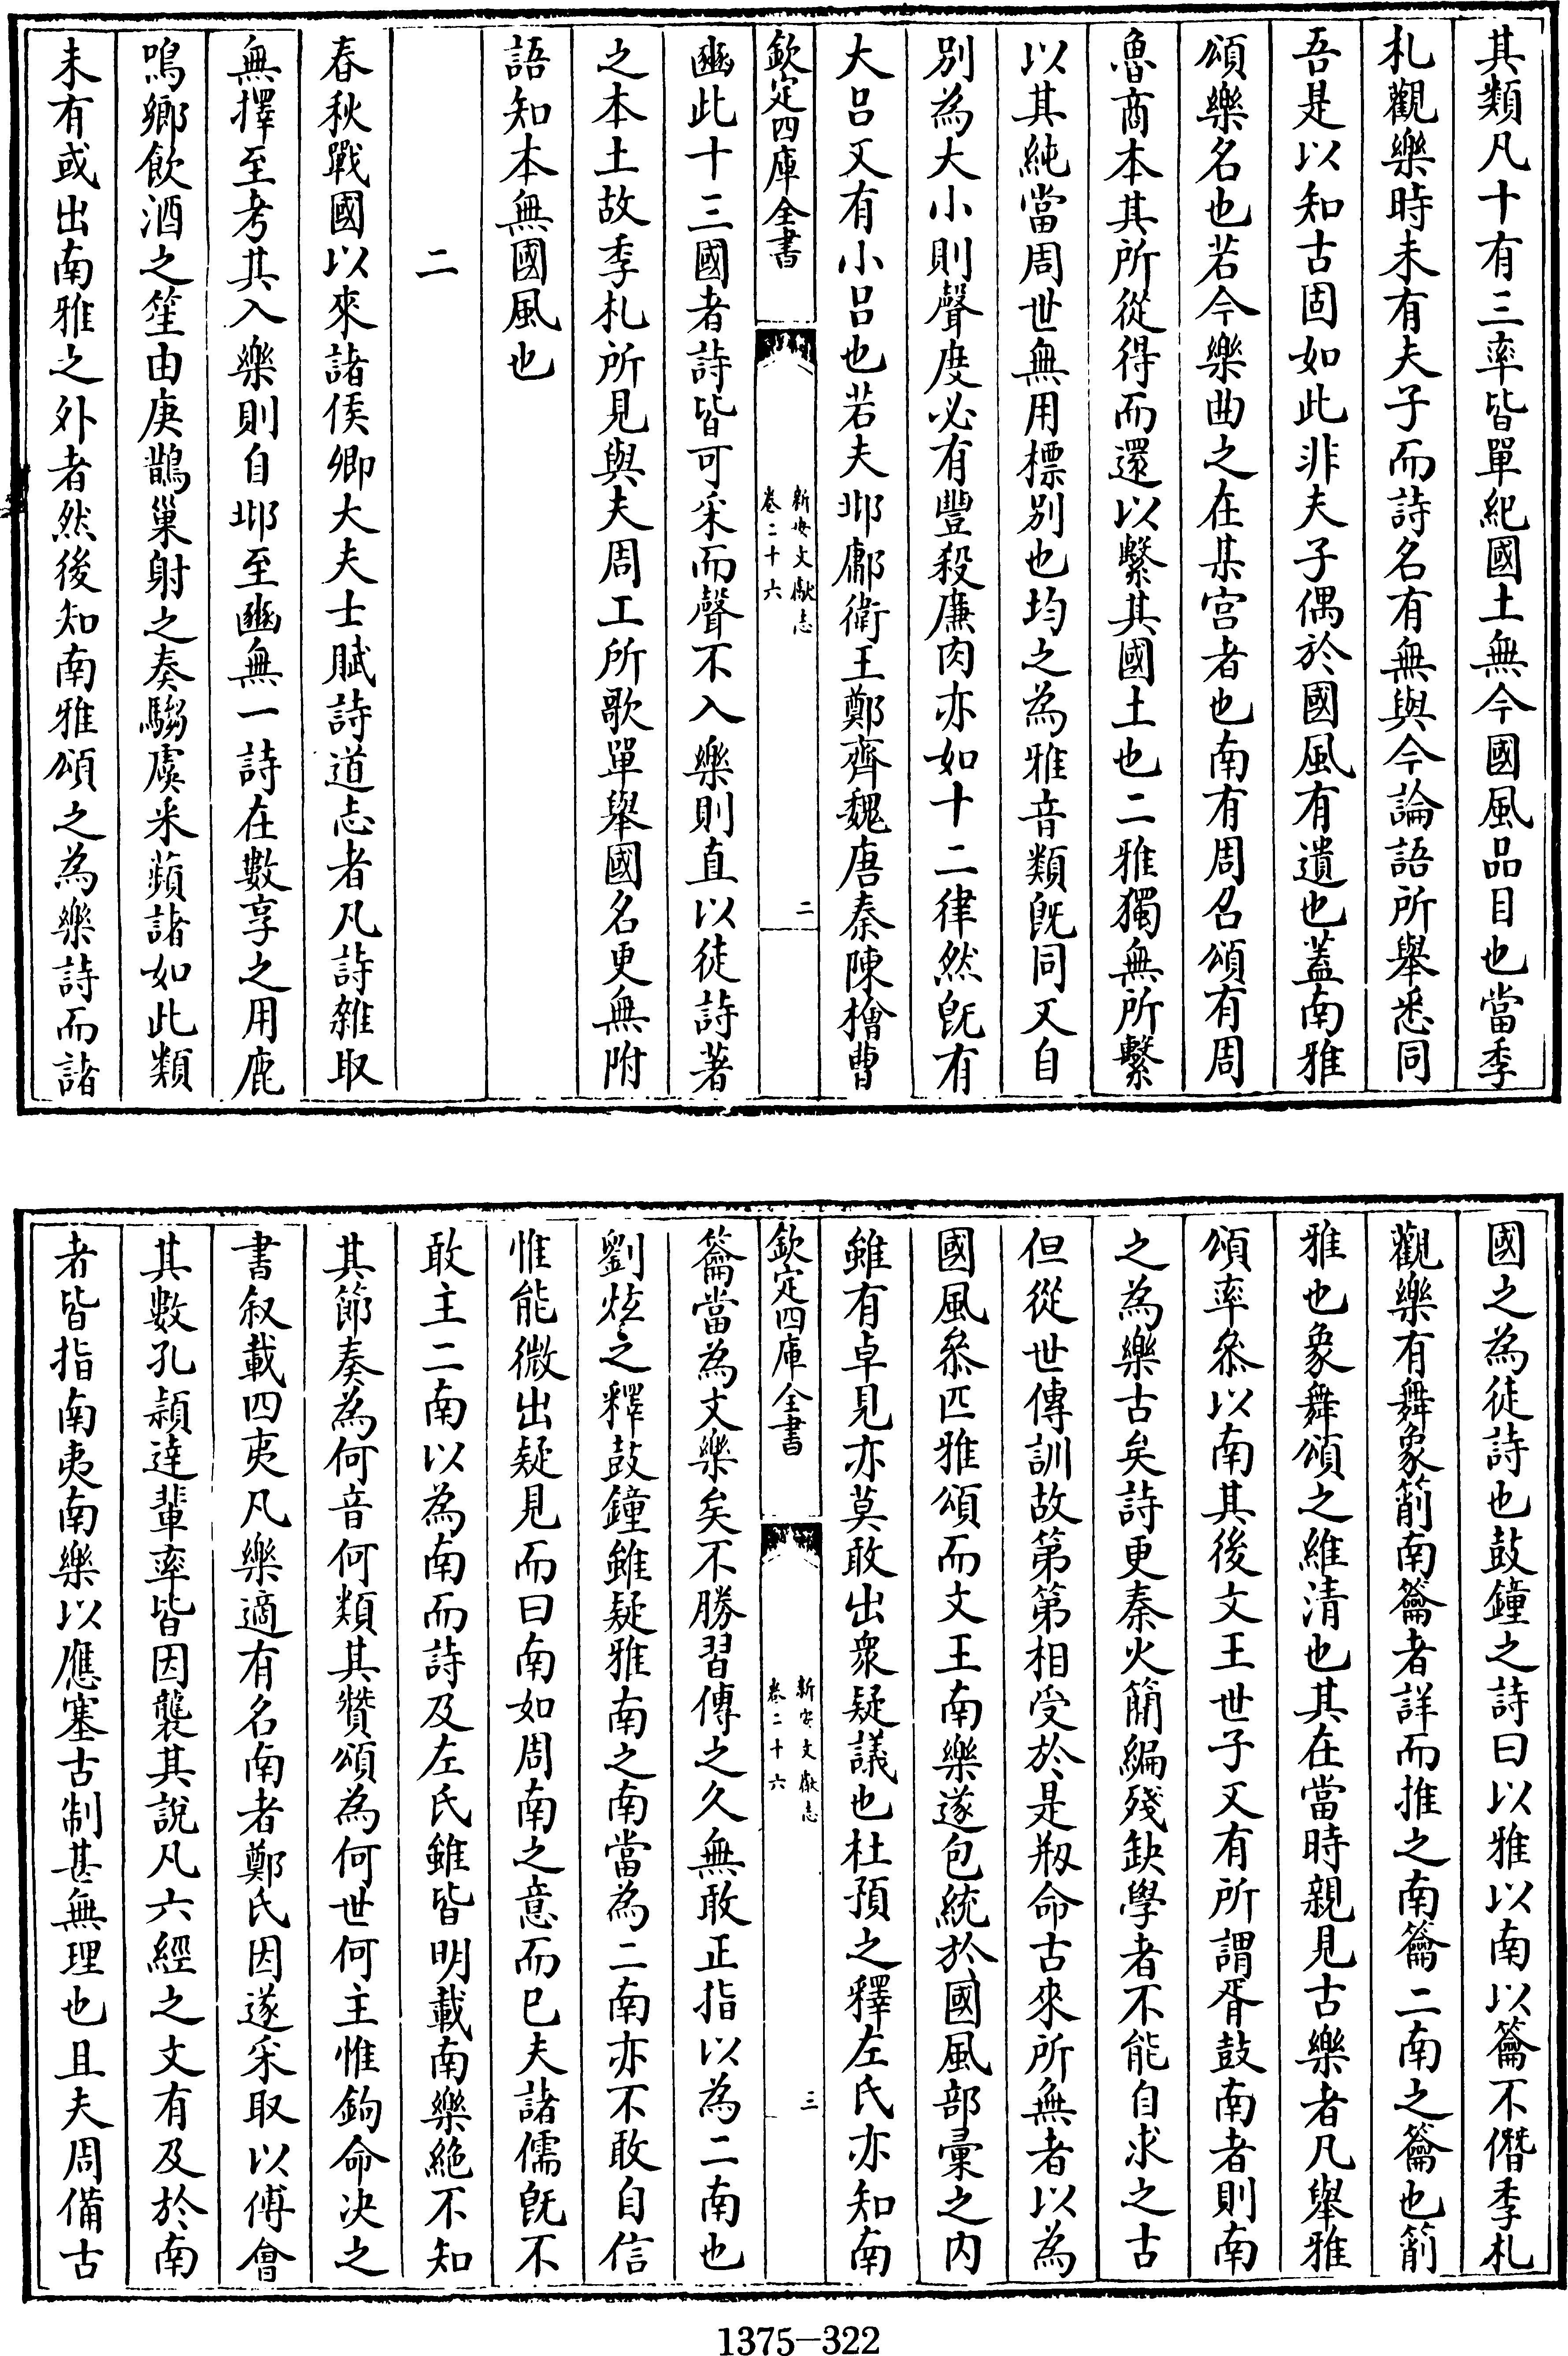 其類凡十有三率皆單紀國土無今國風品目也當季
札觀樂時未有夫子而詩名有無與今論語所舉悉同
吾是以知古固如此非夫子偶於國風有遺也蓋南雅
頌樂名也若今樂曲之在某宫者也南有周召頌有周
魯商本其所從得而還以繫其國土也二雅獨無所繫
以其純當周世無用標別也均之為雅音類旣同又自
別為大小則聲度必有豐殺廉肉亦如十二律然旣有
大呂又有小呂也若夫邶鄘衛王鄭齊魏唐秦陳檜曹
欽定四庫全書
新安文獻志
卷二十六
二
豳此十三國者詩皆可采而聲不入樂則直以徒詩著
之本土故季札所見與夫周工所歌單舉國名更無附
語知本無國風也
二
春秋戰國以來諸侯卿大夫士賦詩道志者凡詩雜取
無擇至考其入樂則自邶至豳無一詩在數享之用鹿
鳴鄉飲酒之笙由庚鵲巢射之奏騶虞采蘋諸如此類
未有或出南雅之外者然後知南雅頌之為樂詩而諸
國之為徒詩也鼓鐘之詩曰以雅以南以籥不僭季札
觀樂有舞象箾南籥者詳而推之南籥二南之籥也箾
雅也象舞頌之維清也其在當時親見古樂者凡舉雅
頌率叅以南其後文王世子又有所謂胥鼓南者則南
之為樂古矣詩更秦火簡編殘缺學者不能自求之古
但從世傳訓故第第相受於是剏命古來所無者以為
國風叅匹雅頌而文王南樂遂包統於國風部彚之内
雖有卓見亦莫敢出衆疑議也杜預之釋左氏亦知南
欽定四庫全書
新安文獻志
卷二十六
三
籥當為文樂矣不勝習傳之久無敢正指以為二南也
劉炫之釋鼓鐘雖疑雅南之南當為二南亦不敢自信
惟能微出疑見而曰南如周南之意而已夫諸儒旣不
敢主二南以為南而詩及左氏雖皆明載南樂絶不知
其節奏為何音何類其贊頌為何世何主惟鉤命决之
書叙載四夷凡樂適有名南者鄭氏因遂采取以傅會
其數孔頴達輩率皆因襲其說凡六經之文有及於南
者皆指南夷南樂以應塞古制甚無理也且夫周備古
1375-322